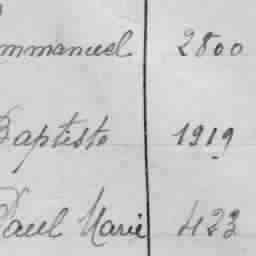 Emmanuel 2800
Baptiste 1919
Paul Marie 423